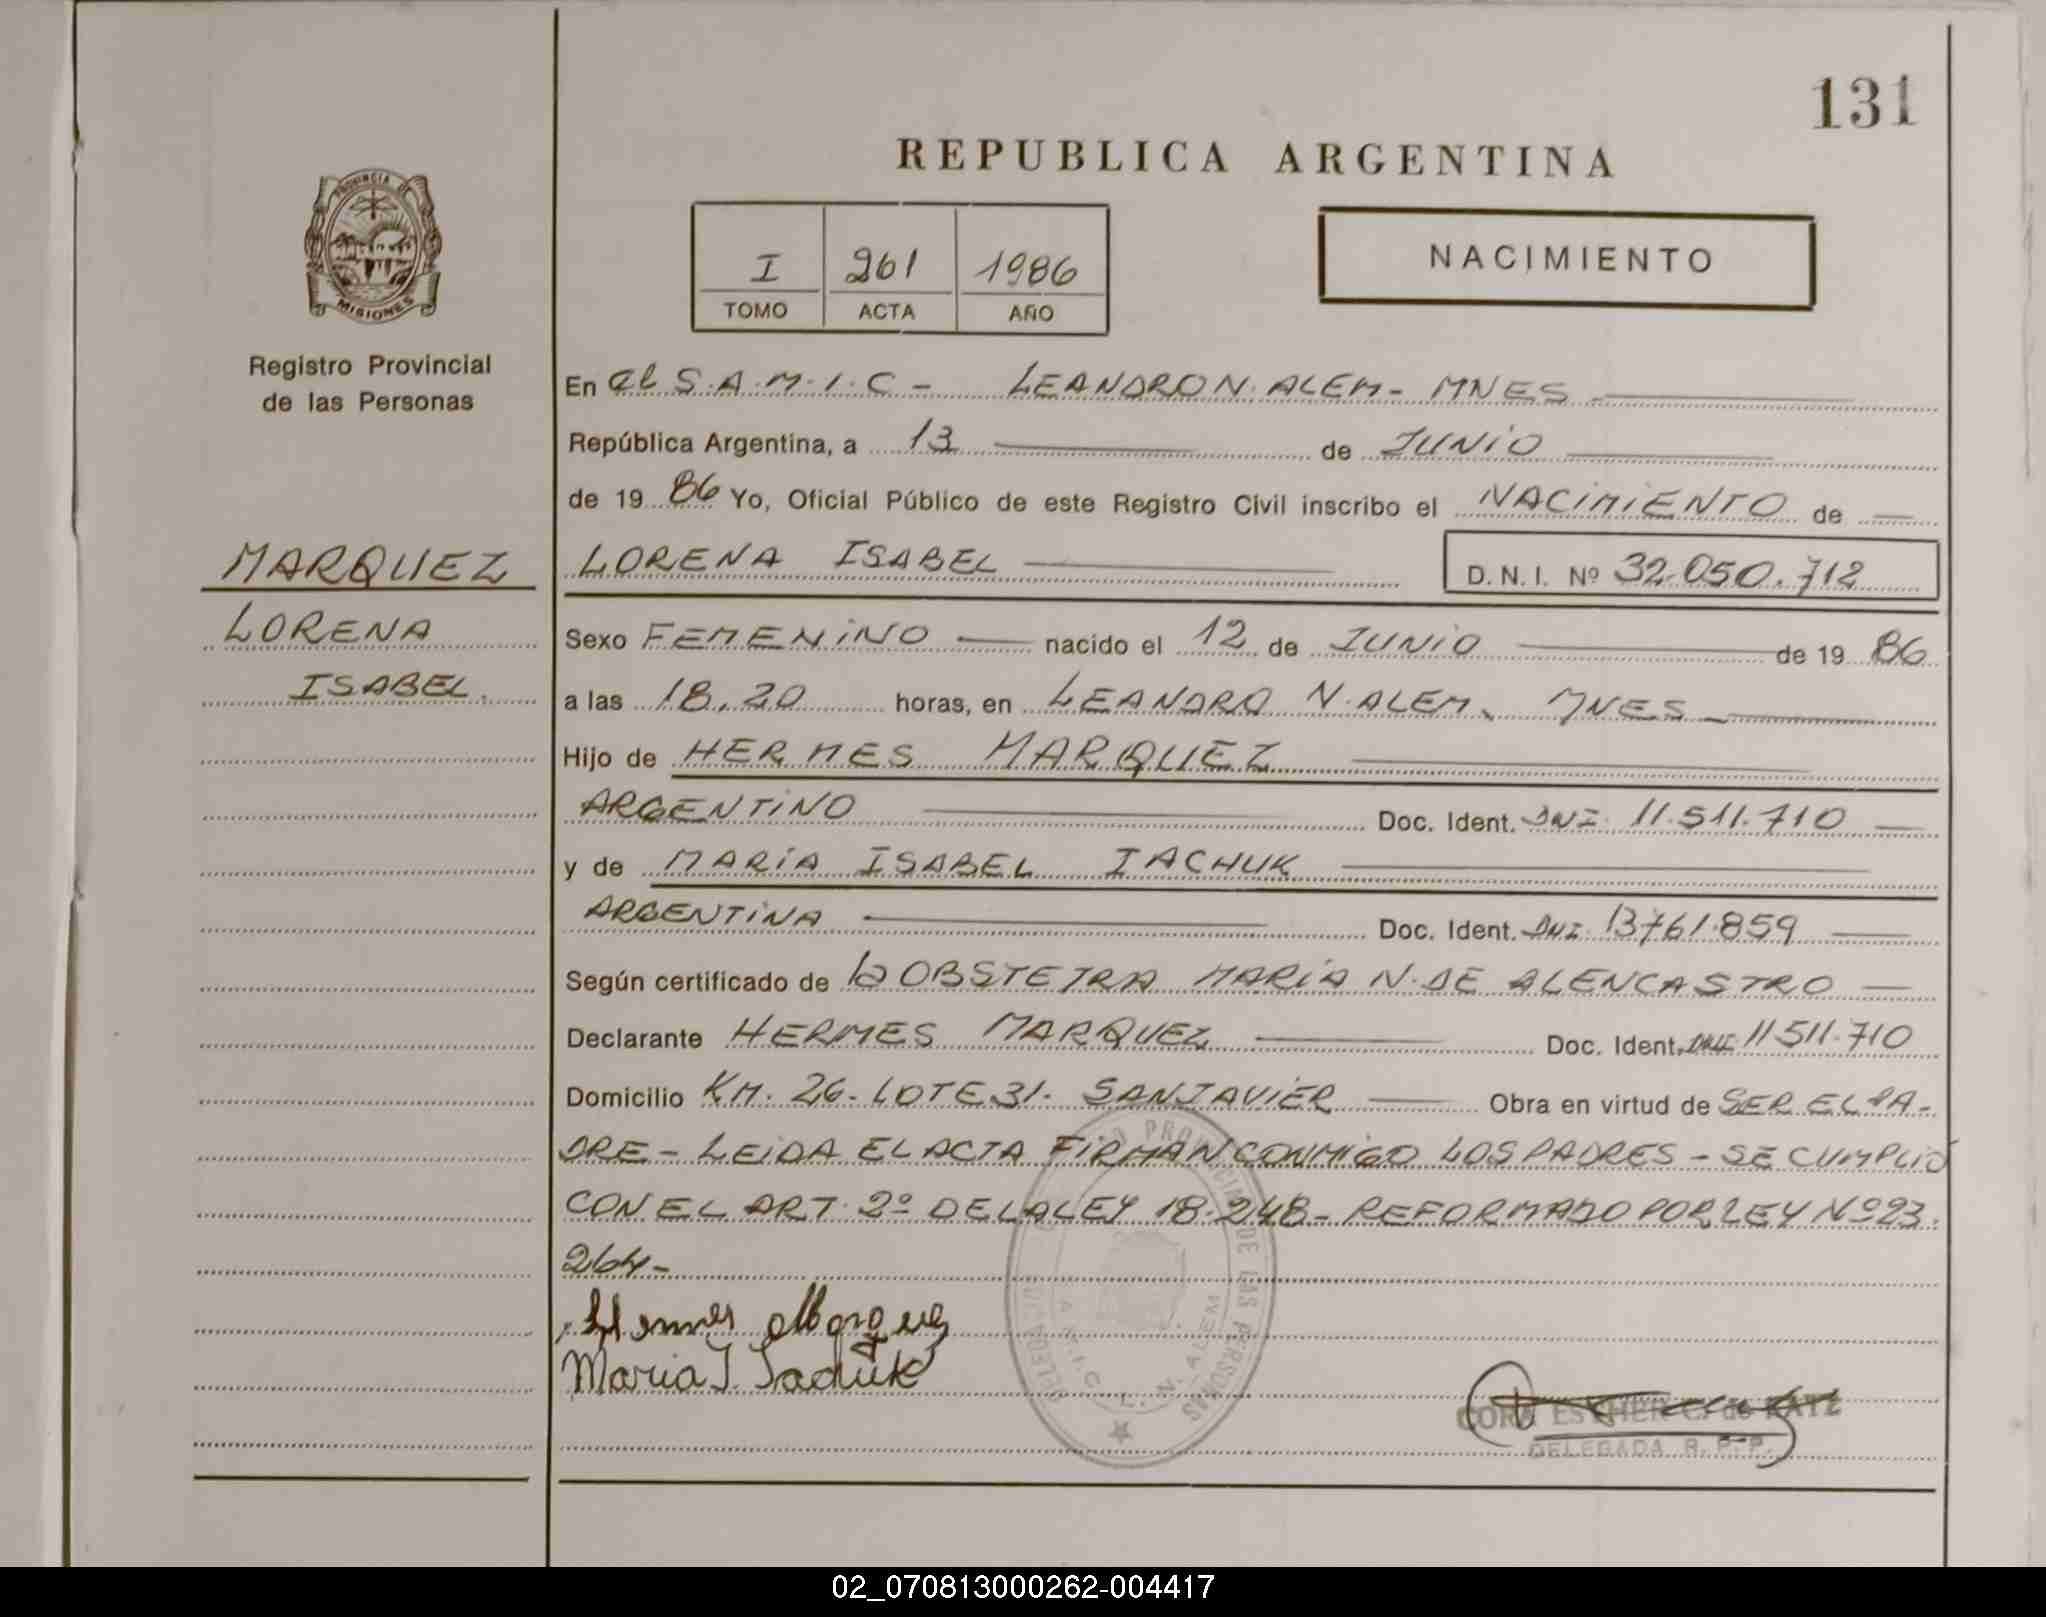 131
REPUBLICA ARGENTINA
PROVINCIA DE
MISIONES
Registro Provincial
de las Personas
I 261 1986
TOMO ACTA AÑO
NACIMIENTO
MARQUEZ
LORENA
ISABEL.
En el S.A.M.I.C - LEANDRO N. ALEM - MNES
República Argentina, a 13 de JUNIO
de 19 86 Yo, Oficial Público de este Registro Civil inscribo el NACIMIENTO de
LORENA ISABEL D. N. I. Nº 32.050.712
Sexo FEMENINO nacido el 12 de JUNIO de 19 86
a las 18.20 horas, en LEANDRO N. ALEM. MNES
Hijo de HERMES MARQUEZ
ARGENTINO Doc. Ident. DNI. 11.511.710
y de MARIA ISABEL IACHUK
ARGENTINA Doc. Ident. DNI. 13761.859
Según certificado de la OBSTETRA MARIA N. DE ALENCASTRO
Declarante HERMES MARQUEZ Doc. Ident. DNI 11511.710
Domicilio KM. 26. LOTE 31. SAN JAVIER Obra en virtud de SER EL PA-
DRE - LEIDA EL ACTA FIRMAN CONMIGO LOS PADRES - SE CUMPLIO
CON EL ART. 2º DE LA LEY 18.248 - REFORMADO POR LEY Nº 23.
264 -
Hermes Marquez
Maria I. Iachuk
DE LAS PERSONAS
L. N. ALEM
CORA ESTHER C. de KATZ
DELEGADA R. P. P.
02_070813000262-004417